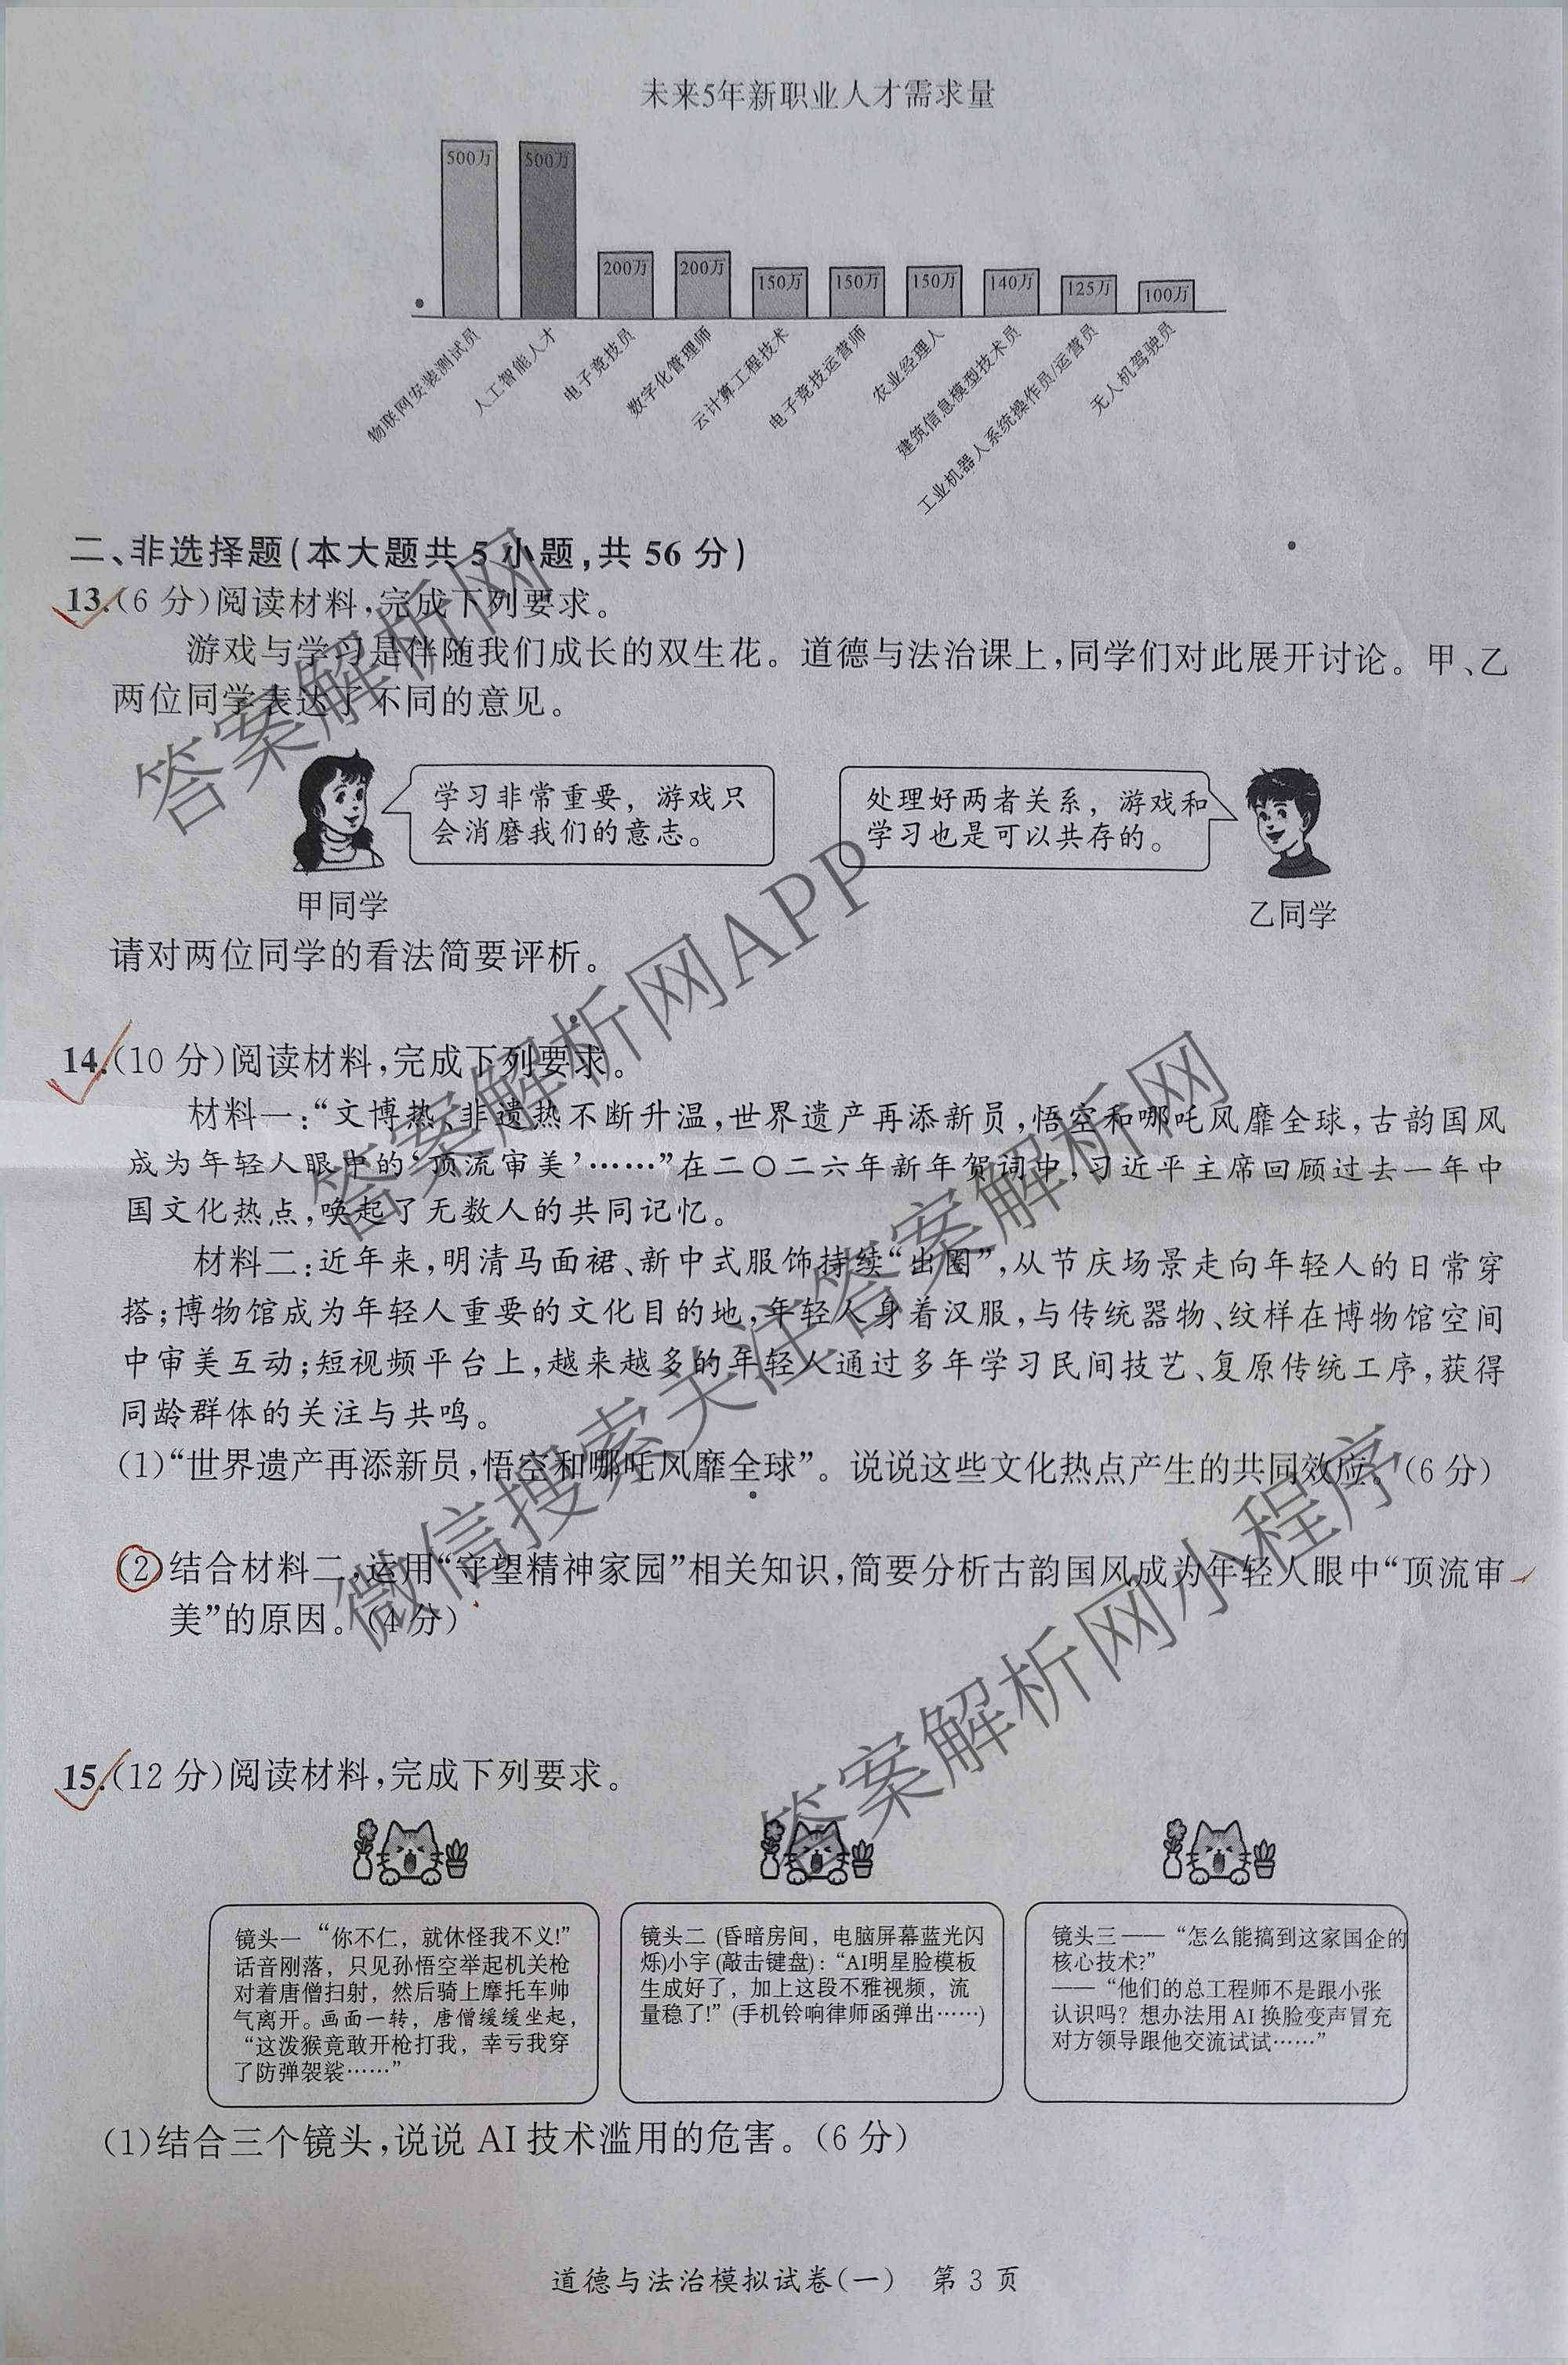 未来5年新职业人才需求量
500万
500万
200万
200万
150万
150万
150万
140万
125万
100万
物联网安装测试员
人工智能人才
电子竞技员
数字化管理师
云计算工程技术
电子竞技运营师
农业经理人
建筑信息模型技术员
工业机器人系统操作员/运营员
无人机驾驶员
二、非选择题(本大题共 5 小题,共 56 分)
13.(6 分)阅读材料,完成下列要求。
游戏与学习是伴随我们成长的双生花。道德与法治课上,同学们对此展开讨论。甲、乙
两位同学表达了不同的意见。
学习非常重要，游戏只
会消磨我们的意志。
处理好两者关系，游戏和
学习也是可以共存的。
甲同学
乙同学
请对两位同学的看法简要评析。
14.(10 分)阅读材料,完成下列要求。
材料一:“文博热、非遗热不断升温,世界遗产再添新员,悟空和哪吒风靡全球,古韵国风
成为年轻人眼中的‘顶流审美’……”在二〇二六年新年贺词中,习近平主席回顾过去一年中
国文化热点,唤起了无数人的共同记忆。
材料二:近年来,明清马面裙、新中式服饰持续“出圈”,从节庆场景走向年轻人的日常穿
搭;博物馆成为年轻人重要的文化目的地,年轻人身着汉服,与传统器物、纹样在博物馆空间
中审美互动;短视频平台上,越来越多的年轻人通过多年学习民间技艺、复原传统工序,获得
同龄群体的关注与共鸣。
(1)“世界遗产再添新员,悟空和哪吒风靡全球”。说说这些文化热点产生的共同效应。(6 分)
(2)结合材料二,运用“守望精神家园”相关知识,简要分析古韵国风成为年轻人眼中“顶流审
美”的原因。(4 分)
15.(12 分)阅读材料,完成下列要求。
镜头一 “你不仁，就休怪我不义!”
话音刚落，只见孙悟空举起机关枪
对着唐僧扫射，然后骑上摩托车帅
气离开。画面一转，唐僧缓缓坐起，
“这泼猴竟敢开枪打我，幸亏我穿
了防弹袈裟……”
镜头二 (昏暗房间，电脑屏幕蓝光闪
烁)小宇 (敲击键盘)：“AI明星脸模板
生成好了，加上这段不雅视频，流
量稳了!” (手机铃响律师函弹出……)
镜头三 ——“怎么能搞到这家国企的
核心技术?”
——“他们的总工程师不是跟小张
认识吗？想办法用 AI 换脸变声冒充
对方领导跟他交流试试……”
(1)结合三个镜头,说说 AI 技术滥用的危害。(6 分)
道德与法治模拟试卷(一) 第 3 页
答案解析网
答案解析网APP
微信搜索关注答案解析网
答案解析网小程序